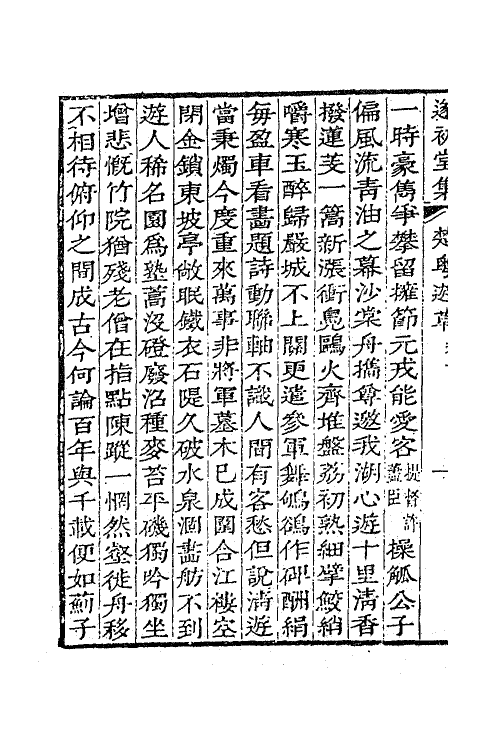 遂初堂集 楚粵遊草
一時豪雋爭攀留擁節元戎能愛客提督許藎臣操觚公子
偏風流青油之幕沙棠舟攜尊邀我湖心遊十里清香
撥蓮芡一篙新漲衝鳧鷗火齊堆盤荔初熟細擘鮫綃
嚼寒玉醉歸嚴城不上關更遣參軍舞鴝鵒作碑酬絹
每盈車看畫題詩動聯軸不識人間有客愁但說清遊
當秉燭今度重來萬事非將軍墓木已成圍合江樓空
閉金鎖東坡亭敞眠鐵衣石隄久破水泉涸畵舫不到
遊人稀名園爲塾蒿沒磴廢沼種麥苔平磯獨吟獨坐
增悲慨竹院猶殘老僧在指點陳蹤一惘然壑徙舟移
不相待俯仰之間成古今何論百年與千載便如薊子